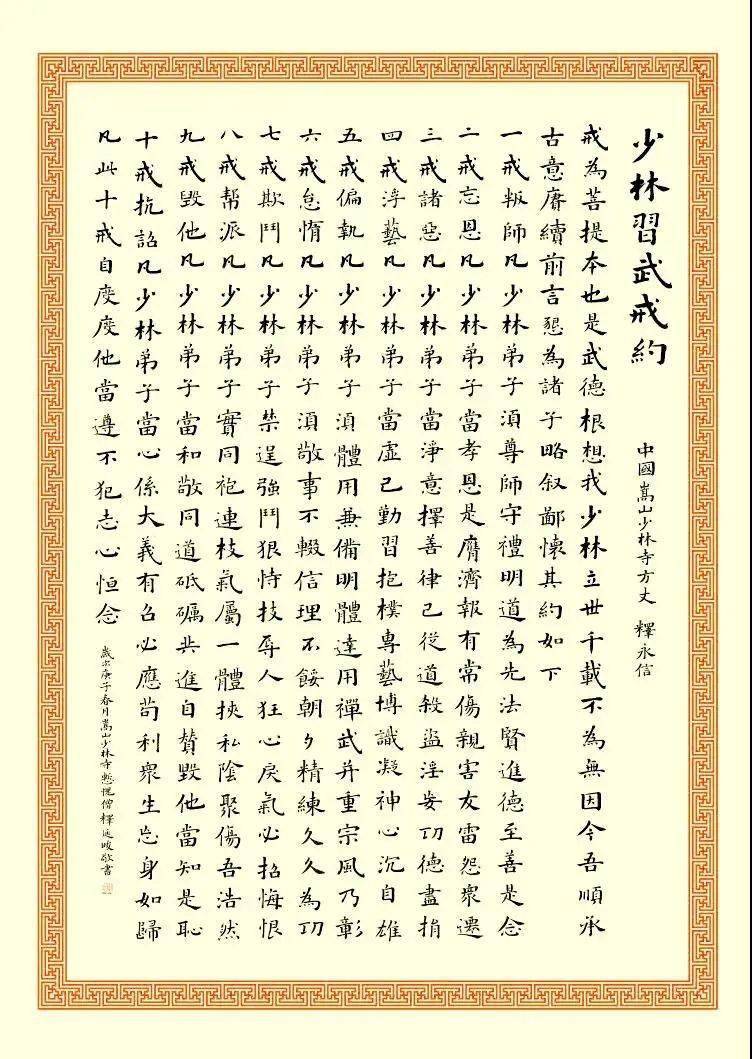 少林習武戒約
中國嵩山少林寺方丈 釋永信
戒為菩提本也是武德根想我少林立世千載不為無因今吾順承
古意賡續前言懇為諸子略叙鄙懷其約如下
一戒叛師凡少林弟子須尊師守禮明道為先法賢進德至善是念
二戒忘恩凡少林弟子當孝恩是膺濟報有常傷親害友雷怨衆遷
三戒諸惡凡少林弟子當淨意擇善律己從道殺盜淫妄功德盡捐
四戒浮藝凡少林弟子當虛己勤習抱樸專藝博識凝神心沉自雄
五戒偏執凡少林弟子須體用兼備明體達用禪武并重宗風乃彰
六戒怠惰凡少林弟子須敬事不輟信理不餒朝夕精練久久為功
七戒欺鬥凡少林弟子禁逞強鬥狠恃技辱人狂心戾氣必招悔恨
八戒幫派凡少林弟子實同袍連枝氣屬一體挾私陰聚傷吾浩然
九戒毀他凡少林弟子當和敬同道砥礪共進自贊毀他當知是恥
十戒抗詔凡少林弟子當心係大義有召必應苟利衆生忘身如歸
凡此十戒自度度他當遵不犯志心恒念
歲次庚子春月嵩山少林寺慙愧僧釋延敬書